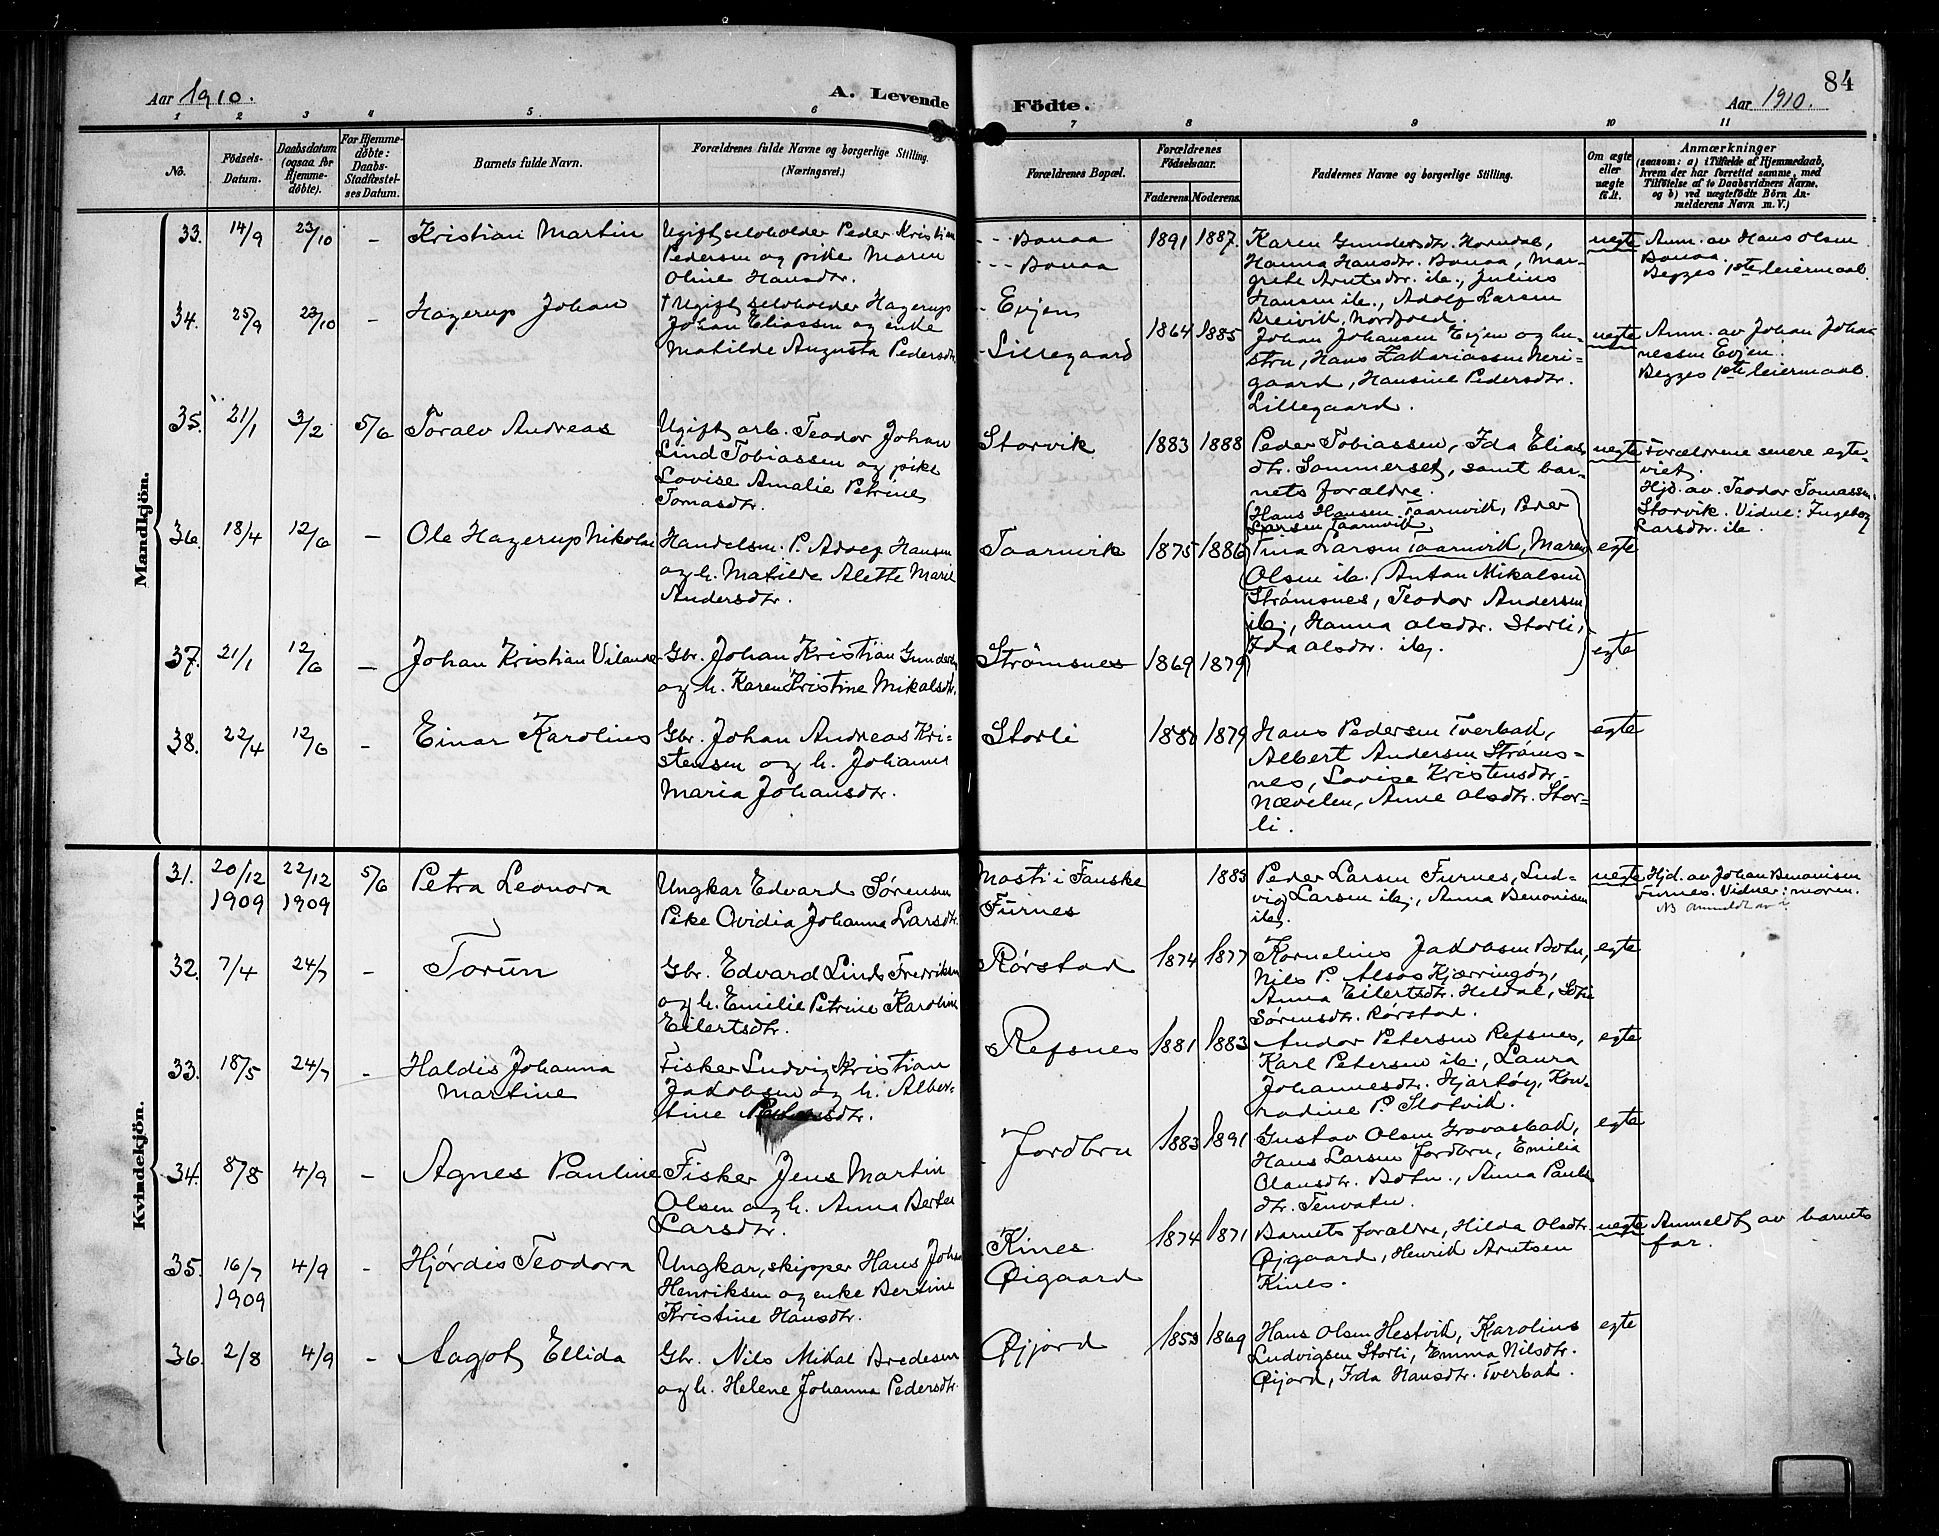 84
Aar 1910.
A. Levende Födte.
Aar 1910.
1 2 3 4 5. 6 7 8 9 10 11
No.
Födsels-
Datum.
Daabsdatum
(ogsaa for
Hjemme-
döbte).
For Hjemme-
döbte:
Daabs-
Stadfæstel-
ses Datum.
Barnets fulde Navn.
Forældrenes fulde Navne og borgerlige Stilling.
(Næringsvei.)
Forældrenes Bopæl.
Forældrenes
Födselsaar.
Faderens. Moderens.
Faddernes Navne og borgerlige Stilling.
Om ægte
eller
uægte
født.
Anmærkninger
(saasom: a) i Tilfælde af Hjemmedaab,
hvem der har forrettet samme, med
Tilföielse af to Daabsvidners Navne,
og b) ved uægtefödte Börn An-
melderens Navn m. V.)
Mandkjön.
33. 14/9 23/10 - Kristian Martin
Ugift selvholder Peder Kristian
Pedersen og pike Maren
Oline Hansdtr.
Bonaa
Bonaa
1891 1887.
Karen Gundersdtr. Horndal,
Hanna Hansdtr. Bonaa, Mar-
grete Arntsdr. ib., Julius
Hansen ib., Adolf Larsen
Breivik, Nordfold.
uegte
Anm. av Hans Olsen
Bonaa.
Begges 1ste leiermaal.
34. 25/9 23/10 - Hagerup Johan
† Ugift selvholder Hagerup
Johan Eliassen og enke
Matilde Augusta Pedersdtr.
Evjen
Lillegaard
1864 1885
Johan Johansen Evjen og hu-
stru, Hans Zakariassen Neri-
gaard, Hansine Pedersdtr.
Lillegaard.
uegte
Anm. av Johan Johan
nessen Evjen.
Begges 1ste leiermaal.
35. 21/1 3/2 5/6 Toralv Andreas
Ugift arb. Teodor Johan
Lind Tobiassen og pike
Lovise Amalie Petrine
Tomasdtr.
Storvik
1883 1888
Peder Tobiassen, Ida Elias
dtr. Sommerset, samt bar-
nets forældre.
uegte
Forældrene senere egte-
viet.
Hjd. av. Teodor Tomassen
Storvik. Vidne: Ingeborg
Larsdtr. ib.
36. 18/4 12/6 - Ole Hagerup Nikolai
Handelsm. P. Adolf Hansen
og h. Matilde Alette Marie
Andersdtr.
Taarnvik
1875 1886
Hans Hansen Taarnvik, Peder
Larsen Taarnvik
Tina Larsen Taarnvik, Maren
Olsen ib.
egte
37. 21/1 12/6 - Johan Kristian Vilande
Gbr. Johan Kristian Gundersen
og h. Karen Kristine Mikalsdtr.
Strømsnes
1869 1879
Antan Mikalsen
Strømsnes, Teodor Andersen
ib., Hanna Olsdtr. Storli,
Ida Olsdtr. ib.
egte
38. 22/4 12/6 - Einar Karolius
Gbr. Johan Andreas Kri-
stensen og h. Johanne
Maria Johansdtr.
Storli
1880 1879
Hans Pedersen Tverbak,
Albert Andersen Strøms-
nes, Lovise Kristensdtr.
Nævelen, Anne Olsdtr. Stor-
li.
egte
Kvindekjön.
31. 20/12 1909 22/12 1909 5/6 Petra Leonora
Ungkar Edvard Sørensen
Pike Ovidia Johanna Larsdtr.
Mosti i Fauske
Furnes
1883
Peder Larsen Furnes, Lud-
vig Larsen ib., Anna Benonisen
ib.
uegte
Hjd. av Johan Benonisen
Furnes. Vidne: moren.
32. 7/4 24/7 - Torun
Gbr. Edvard Lind Fredriksen
og h. Emilie Petrine Karoline
Eilertsdtr.
Rørstad
1874 1877
Kornelius Jakobsen Botn,
Nils P. Alsos Kjærringøy,
Anna Eilertsdtr. Heldal, Sofie
Sørensdtr. Rørstad.
egte
33. 18/5 24/7 - Haldis Johanna
Martine
Fisker Ludvig Kristian
Jakobsen og h. Alber-
tine
Refsnes
1881 1883
Andor Petersen Refsnes,
Karl Petersen ib., Laura
Johannesdtr. Hjartøy, Kon-
radine P. Slotvik.
egte
34. 8/8 4/9 - Agnes Pauline
Fisker Jens Martin
Olsen og h. Anna Bertea
Larsdtr.
Jordbru
1883 1891
Gustav Olsen Gravasbak,
Hans Larsen Jordbru, Emilie
Olausdtr. Botn., Anna Pauls
dtr. Tenvatn.
egte
35. 16/7 1909 4/9 - Hjørdis Teodora
Ungkar, skipper Hans Johan
Henriksen og enke Bertine
Kristine Hansdtr.
Kines
Øigaard
1874 1871
Barnets forældre, Hilda Olsdtr.
Øigaard, Henrik Arntsen
Kines.
uegte
Anmeldt av barnets
far.
36. 2/8 4/9 - Aagot Ellida
Gbr. Nils Mikal Bredesen
og h. Helene Johanna Pedersdtr.
Øijord
1853 1869
Hans Olsen Hestvik, Karolius
Ludvigsen Storli, Emma Nilsdtr.
Øijord, Ida Hansdtr. Tverbak.
egte